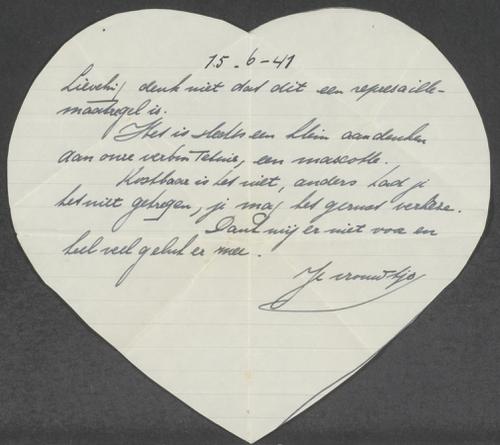 15-6-41
Lieveling denk niet dat dit een represaille-
maatregel is.
Het is slechts een klein aandenken
aan onze verbintenis, een mascotte.
Kostbaar is het niet, anders had je
het niet gekregen, je mag het gerust
Dank mij er niet voor en
heel veel geluk er mee.
Je vrouwtje